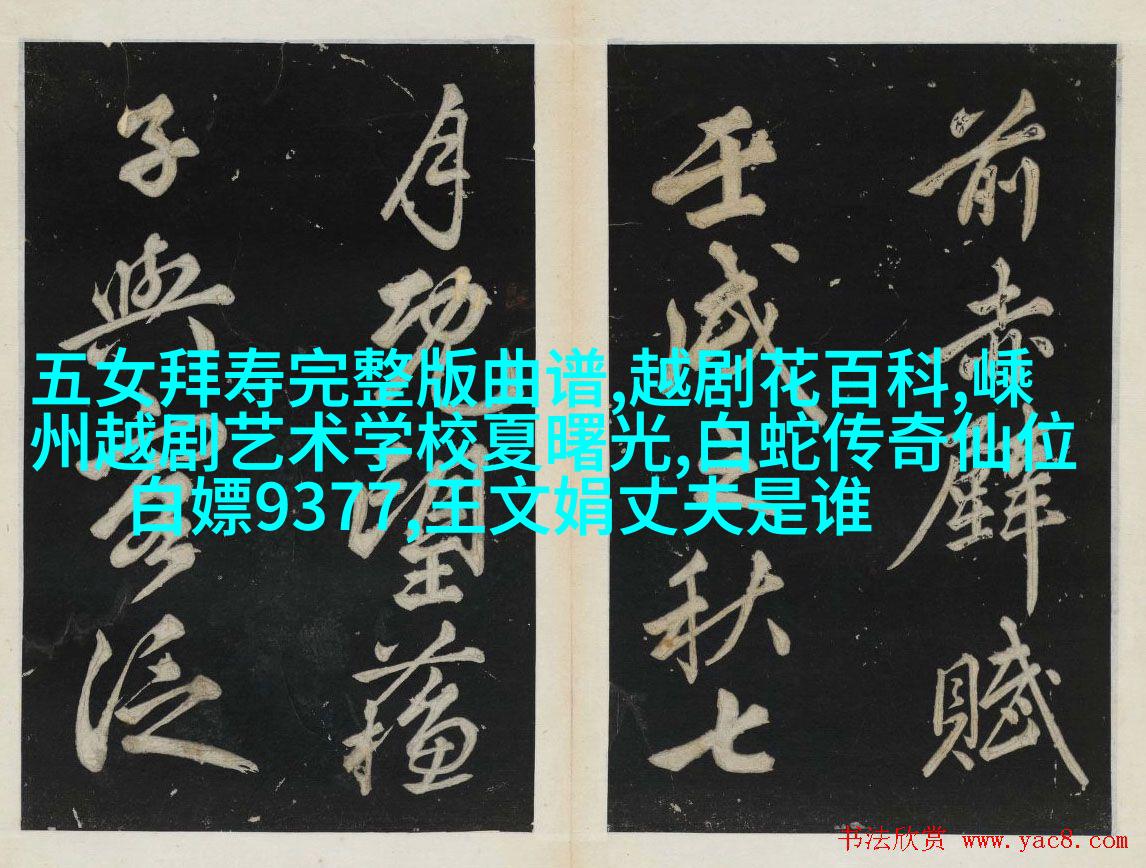 前赤壁賦
壬戌之秋七
月既望蘓
子與客泛
五女拜寿完整版曲谱,越剧花百科,嵊
州越剧艺术学校夏曙光,白蛇传奇仙位
白嫖9377,王文娟丈夫是谁
书法欣赏 www.yac8.com